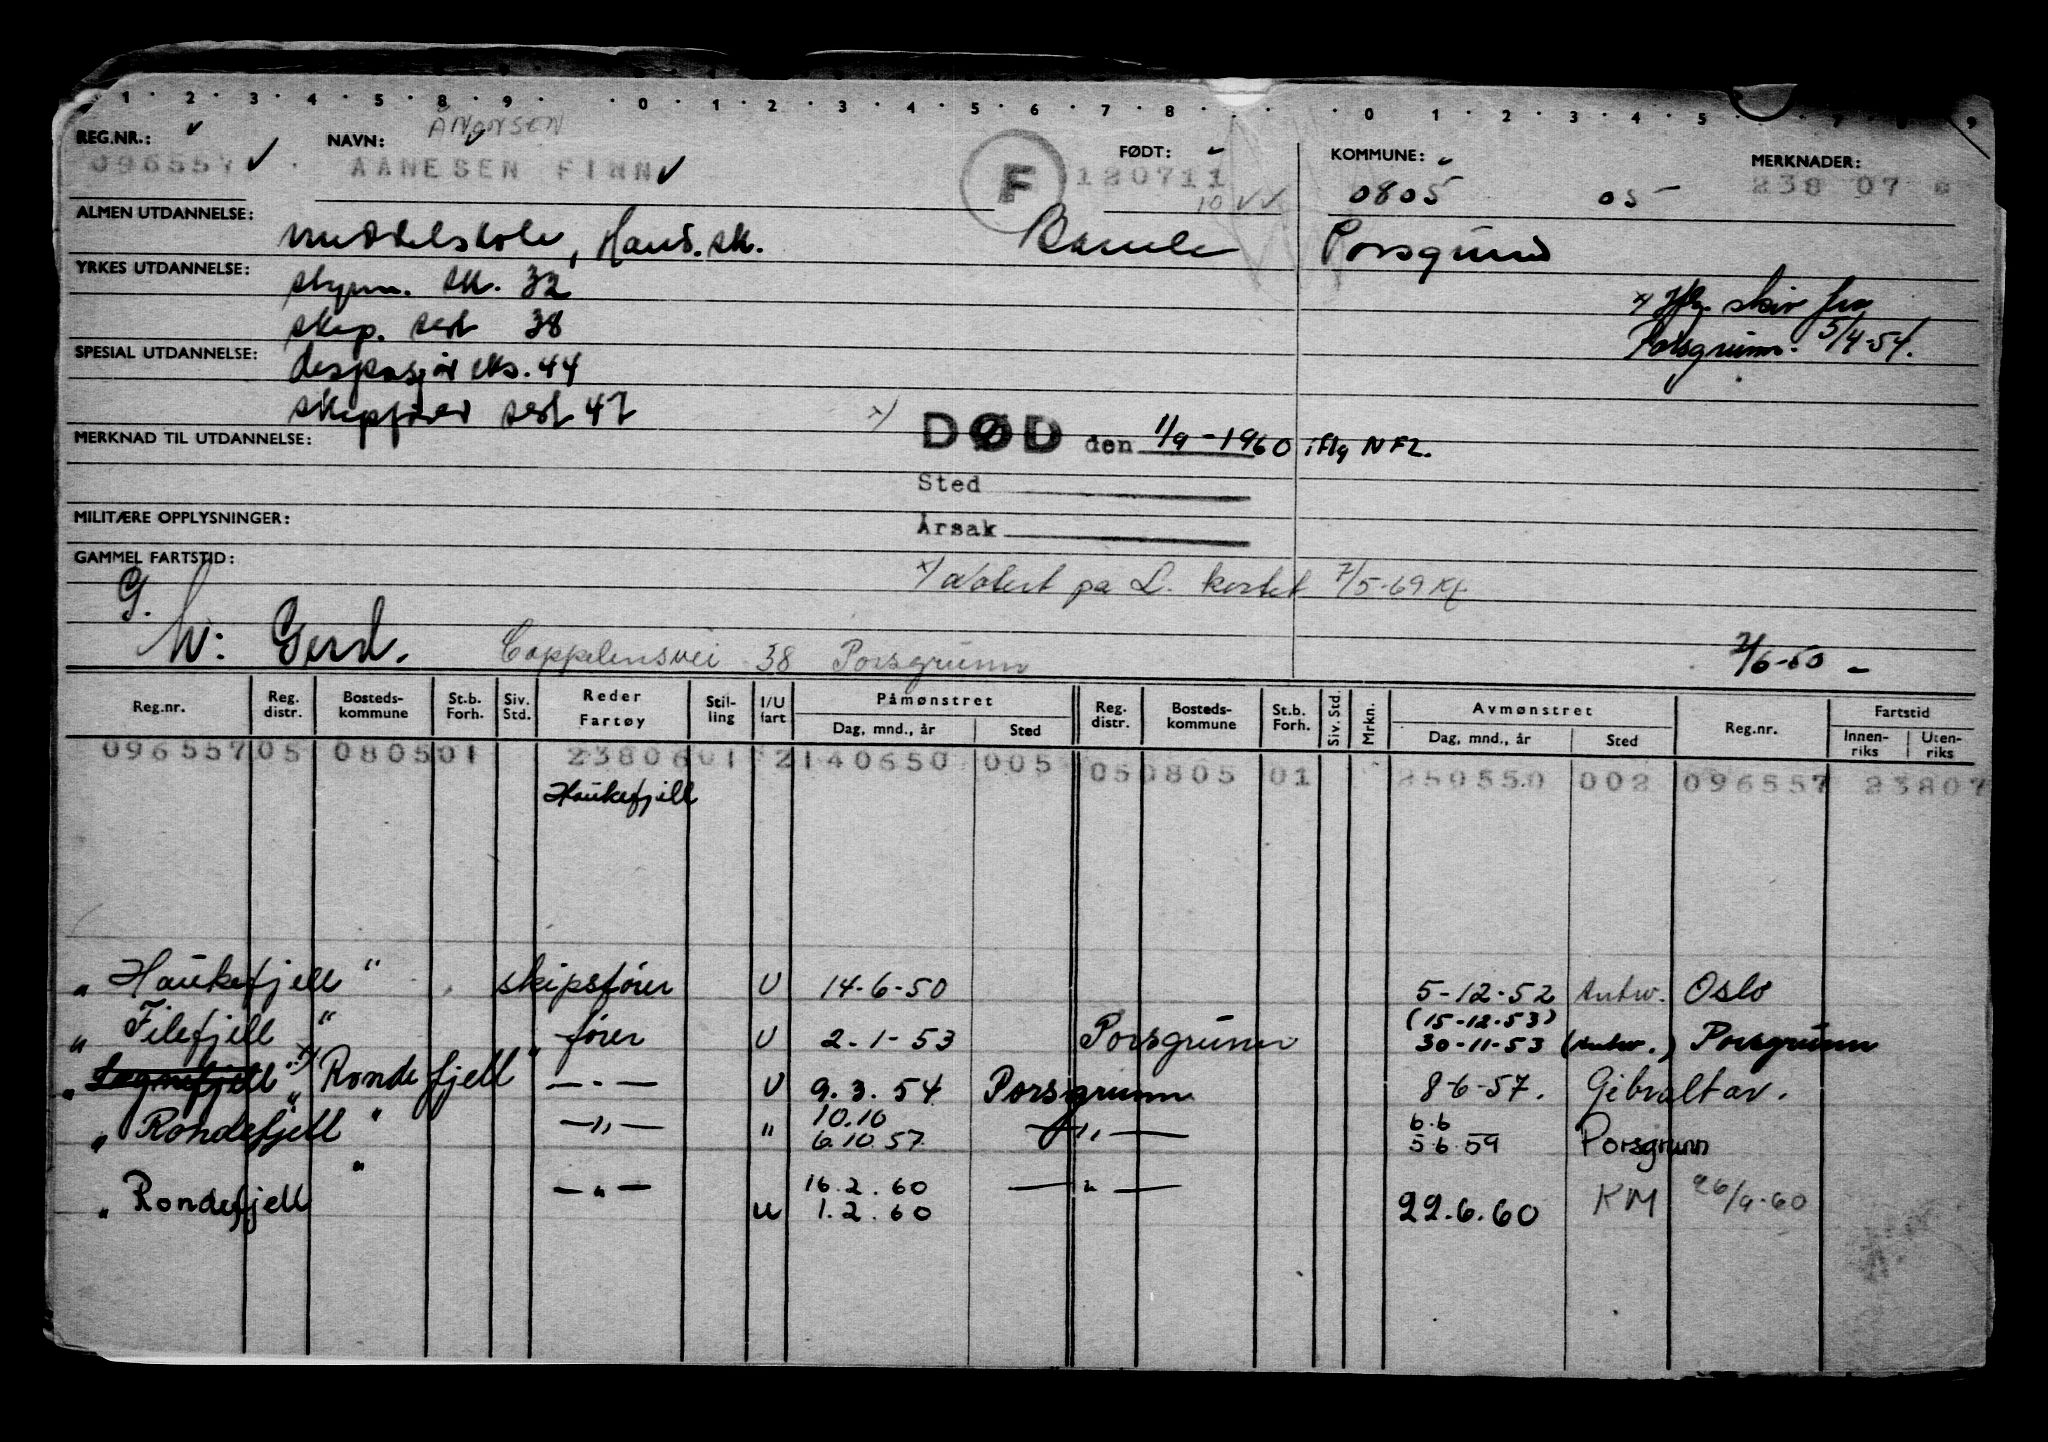 1 2 3 4 5 8 9 0 1 2 3 4 5 6 7 8 0 1 2 3 4 5 7 8 9
REG.NR.: NAVN: ÅNONSEN FØDT: KOMMUNE: MERKNADER:
096557 AANESEN FINN F 120711 0805 05 238 07 6
10
ALMEN UTDANNELSE: Middelskole, Hand. sk. Bamle Porsgrund
YRKES UTDANNELSE: styrm. sk. 32
x) Ifg. skriv fra
skip. sert 38
Porsgrunn. 5/4-54.
SPESIAL UTDANNELSE: despasjör eks. 44
skipsfører sert 47
x) DØD den 1/9-1960 iflg NFL.
MERKNAD TIL UTDANNELSE:
Sted
MILITÆRE OPPLYSNINGER:
Årsak
GAMMEL FARTSTID:
x) Notert på L. kortet 7/5-69 Kf
G.
W: Gerd. Coppelensvei 38 Porsgrunn 7/6-50 -
Reg.nr. Reg. distr. Bosteds-kommune St.b. Forh. Siv. Std. Reder Fartøy Stil-ling I/U fart Påmønstret Reg. distr. Bosteds-kommune St.b. Forh. Siv. Std. Mrkn. Avmønstret Reg.nr. Fartstid
Dag, mnd., år Sted Dag, mnd., år Sted Innen-riks Uten-riks
096557 05 0805 01 23806 01 2 140650 005 05 0805 01 250550 002 096557 23807
Haukefjell
" Haukefjell " skipsfører U 14-6-50 5-12-52 Antw. Oslo
(15-12-53)
" Filefjell " fører U 2-1-53 Porsgrunn 30-11-53 (Antw.) Porsgrunn
" Sognefjell " x) Rondefjell " — " — U 9.3.54 Porsgrunn 8-6-57. Gibraltar.
10.10 6.6
" Rondefjell " — " — " 6.10.57 — " — 5.6.59 Porsgrunn
16.2.60
" Rondefjell " — " — U 1.2.60 — " — 22.6.60 KM 26/9-60